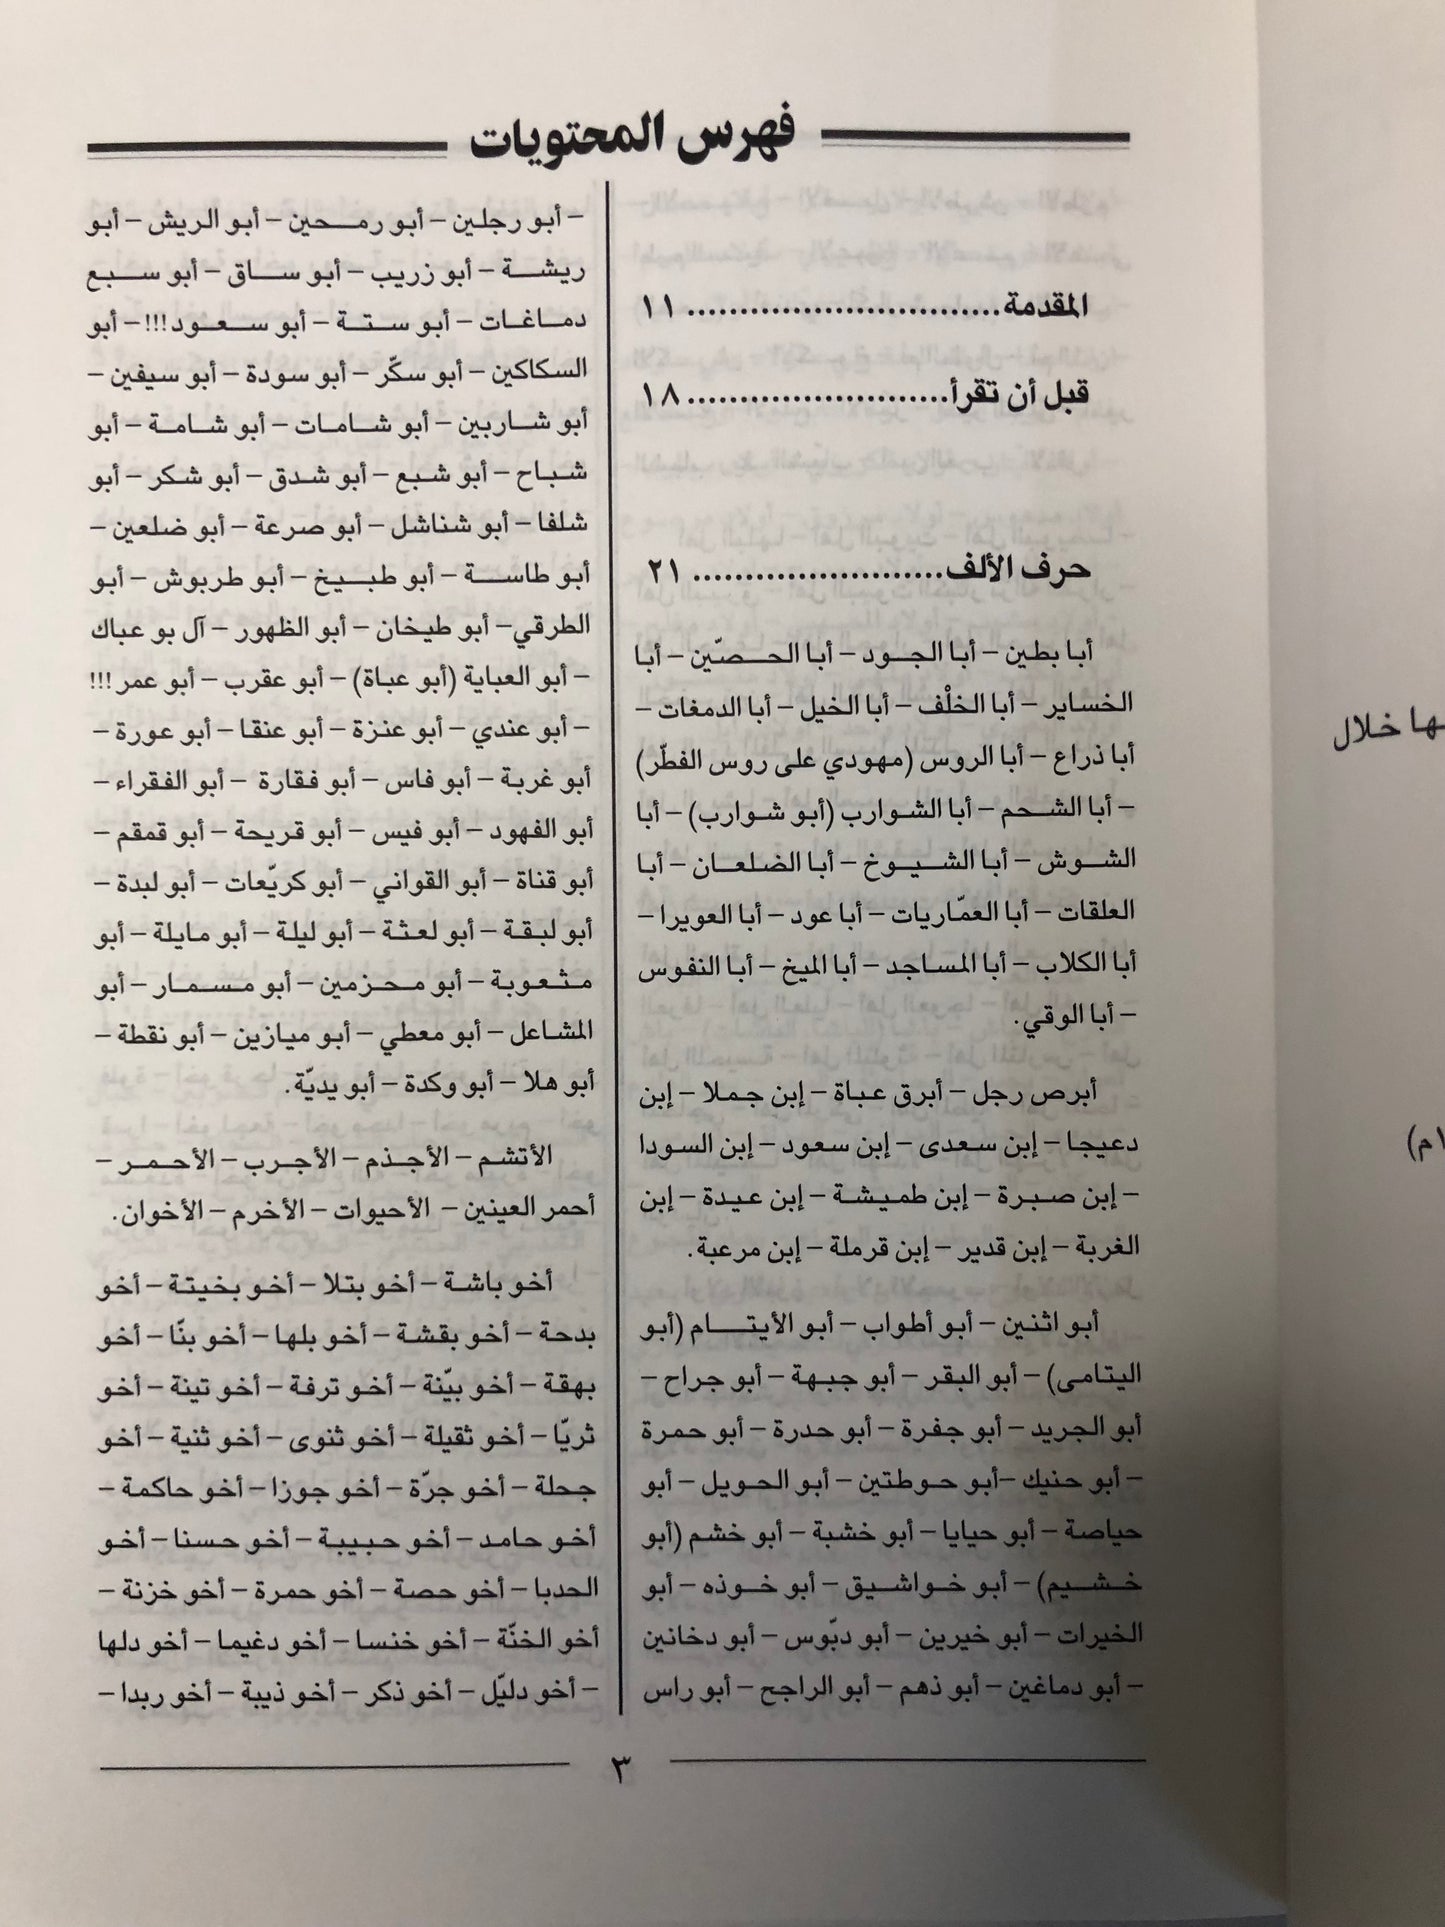 فهرس المحتويات
المقدمة.............................. ١١
قبل أن تقرأ........................ ١٨
حرف الألف........................ ٢١
أبا بطين – أبا الجود – أبا الحصّين – أبا
الخساير – أبا الخلْف – أبا الخيل – أبا الدمغات –
أبا ذراع – أبا الروس (مهودي على روس الفطّر)
– أبا الشحم – أبا الشوارب (أبو شوارب) – أبا
الشوش – أبا الشيوخ – أبا الضلعان – أبا
العلقات – أبا العمّاريات – أبا عود – أبا العويرا –
أبا الكلاب – أبا المساجد – أبا الميخ – أبا النفوس
– أبا الوقي.
أبرص رجل – أبرق عباة – إبن جملا – إبن
دعيجا – إبن سعدى – إبن سعود – إبن السودا
– إبن صبرة – إبن طميشة – إبن عيدة – إبن
الغربة – إبن قدير – إبن قرملة – إبن مرعبة.
أبو اثنين – أبو أطواب – أبو الأيتام (أبو
اليتامى) – أبو البقر – أبو جبهة – أبو جراح –
أبو الجريد – أبو جفرة – أبو حدرة – أبو حمرة
– أبو حنيك –أبو حوطتين – أبو الحويل – أبو
حياصة – أبو حيايا – أبو خشبة – أبو خشم (أبو
خشيم) – أبو خواشيق – أبو خوذه – أبو
الخيرات – أبو خيرين – أبو دبّوس – أبو دخانين
– أبو دماغين – أبو ذهم – أبو الراجح – أبو راس
– أبو رجلين – أبو رمحين – أبو الريش – أبو
ريشة – أبو زريب – أبو ساق – أبو سبع
دماغات – أبو ستة – أبو سعود!!! – أبو
السكاكين – أبو سكّر – أبو سودة – أبو سيفين –
أبو شاربين – أبو شامات – أبو شامة – أبو
شباح – أبو شبع – أبو شدق – أبو شكر – أبو
شلفا – أبو شناشل – أبو صرعة – أبو ضلعين –
أبو طاسة – أبو طبيخ – أبو طربوش – أبو
الطرقي– أبو طيخان – أبو الظهور – آل بو عباك
– أبو العباية (أبو عباة) – أبو عقرب – أبو عمر!!!
– أبو عندي – أبو عنزة – أبو عنقا – أبو عورة –
أبو غربة – أبو فاس – أبو فقارة – أبو الفقراء –
أبو الفهود – أبو فيس – أبو قريحة – أبو قمقم –
أبو قناة – أبو القواني – أبو كريّعات – أبو لبدة –
أبو لبقة – أبو لعثة – أبو ليلة – أبو مايلة – أبو
مثعوبة – أبو محزمين – أبو مسمار – أبو
المشاعل – أبو معطي – أبو ميازين – أبو نقطة –
أبو هلا – أبو وكدة – أبو يديّة.
الأتشم – الأجذم – الأجرب – الأحمر –
أحمر العينين – الأحيوات – الأخرم – الأخوان.
أخو باشة – أخو بتلا – أخو بخيتة – أخو
بدحة – أخو بقشة – أخو بلها – أخو بنّا – أخو
بهقة – أخو بيّنة – أخو ترفة – أخو تينة – أخو
ثريّا – أخو ثقيلة – أخو ثنوى – أخو ثنية – أخو
جحلة – أخو جرّة – أخو جوزا – أخو حاكمة –
أخو حامد – أخو حبيبة – أخو حسنا – أخو
الحدبا – أخو حصة – أخو حمرة – أخو خزنة –
أخو الخنّة – أخو خنسا – أخو دغيما – أخو دلها
– أخو دليّل – أخو ذكر – أخو ذيبة – أخو ربدا –
٣
خلال